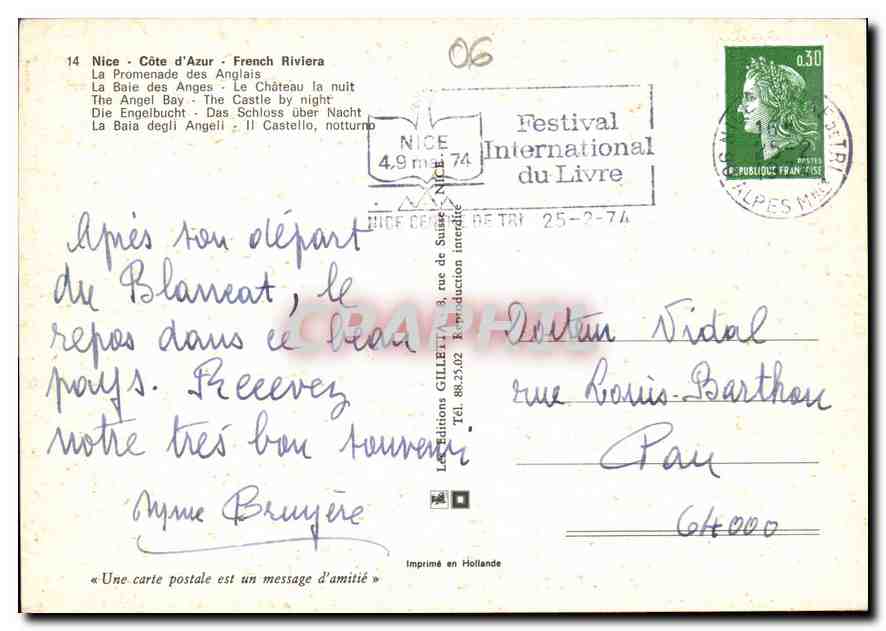 06
14 Nice - Côte d'Azur - French Riviera
La Promenade des Anglais
La Baie des Anges - Le Château la nuit
The Angel Bay - The Castle by night
Die Engelbucht - Das Schloss über Nacht
La Baia degli Angeli - Il Castello, notturno
NICE
4.9 mai 74
Festival
International
du Livre
NICE CENTRE DE TRI 25-2-74
0,30
POSTES
REPUBLIQUE FRANÇAISE
ALPES MMES
Après son départ
du Blancat, le
repos dans ce beau
pays. Recevez
notre très bon souvenir
Mme Bruyère
Les Editions GILLETTA 8, rue de Suisse NICE
Tél. 88.25.02 Reproduction interdite
CRAPHIL
Docteur Vidal
rue Louis-Barthou
Pau
64000
« Une carte postale est un message d'amitié »
Imprimé en Hollande